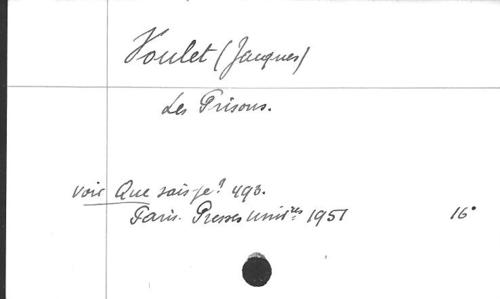 Voulet (Jacques)
Les Prisons.
voir Que sais-je? 493.
Paris. Presses univ.res 1951 16°